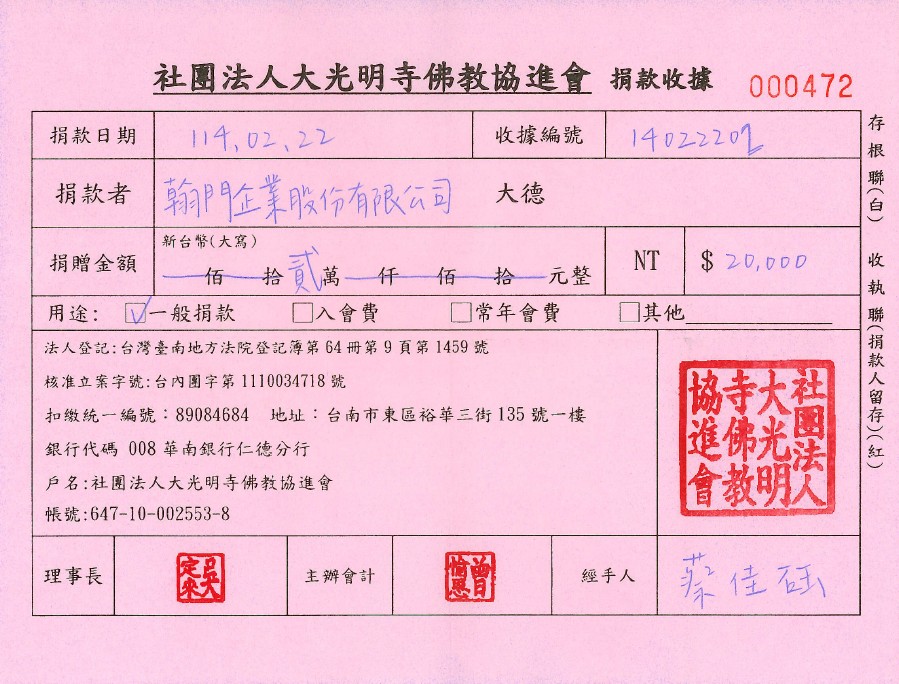 社團法人大光明寺佛教協進會 捐款收據 000472
捐款日期 114.02.22 收據編號 14022201
捐款者 翰門企業股份有限公司 大德
捐贈金額 新台幣(大寫) 佰 拾 貳萬 仟 佰 拾 元整 NT $ 20,000
用途: ☑一般捐款 □入會費 □常年會費 □其他
法人登記:台灣臺南地方法院登記簿第 64 冊第 9 頁第 1459 號
核准立案字號:台內團字第 1110034718 號
扣繳統一編號：89084684 地址：台南市東區裕華三街 135 號一樓
銀行代碼 008 華南銀行仁德分行
戶名:社團法人大光明寺佛教協進會
帳號:647-10-002553-8
社團法人大光明寺佛教協進會
理事長 吳定來 主辦會計 曾 經手人 蔡佳
存根聯(白) 收執聯(捐款人留存)(紅)